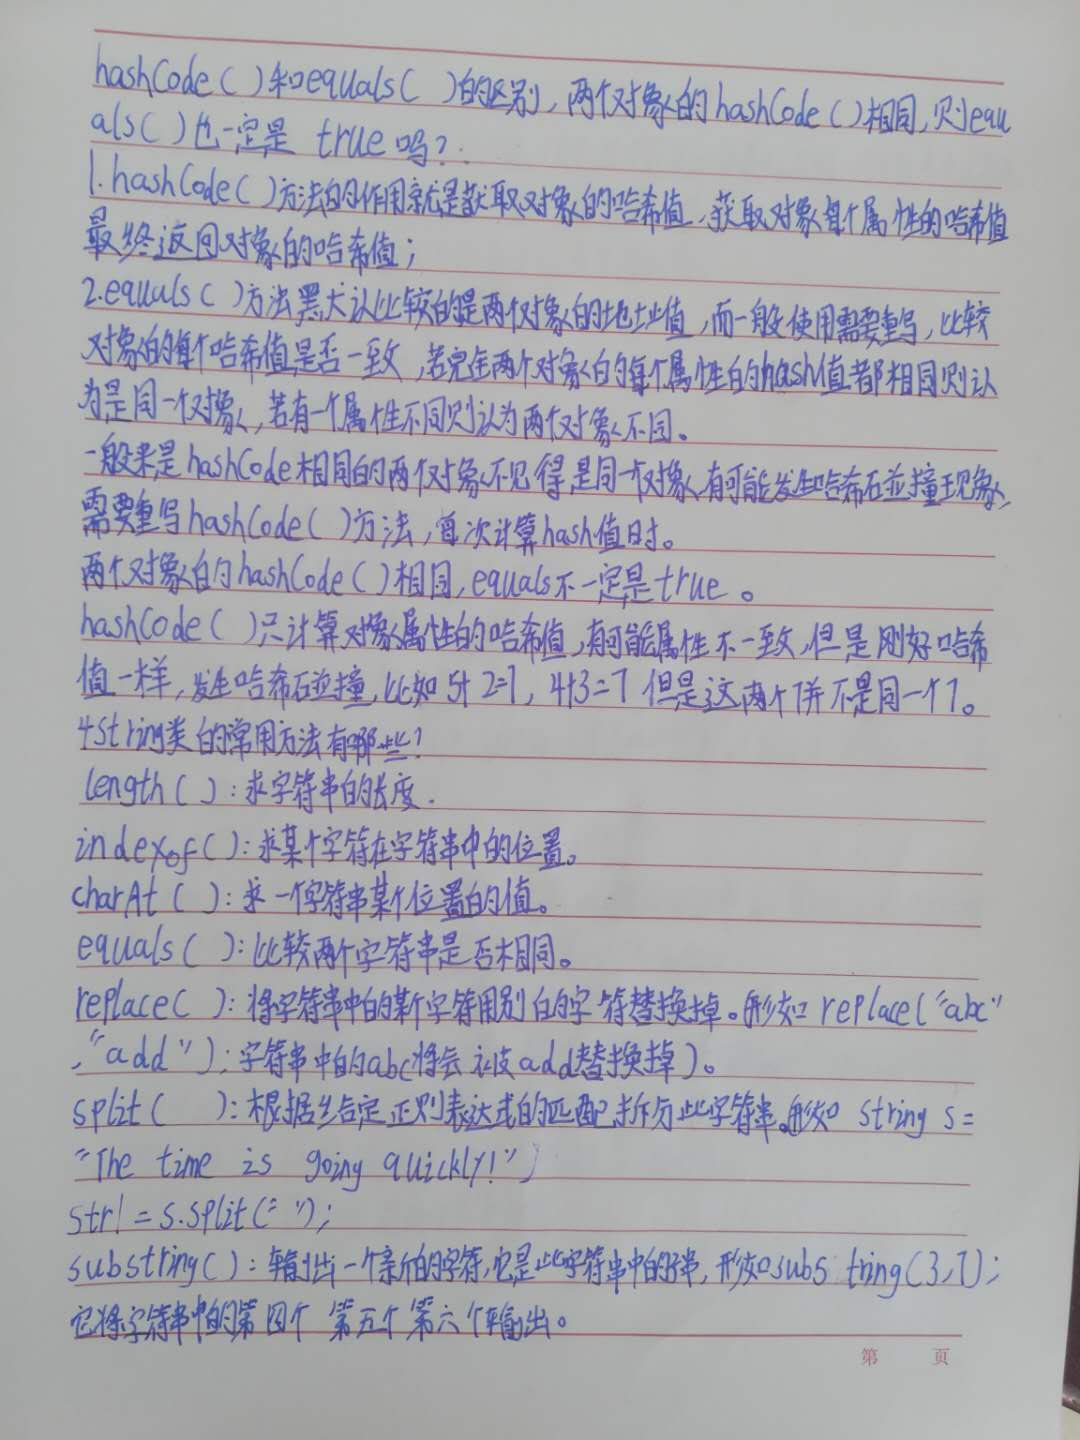 hashCode()和equals()的区别,两个对象的hashCode()相同,则equ
als()也一定是 true吗?
1.hashCode()方法的作用就是获取对象的哈希值,获取对象每个属性的哈希值
最终返回对象的哈希值;
2.equals()方法默认比较的是两个对象的地址值,而一般使用需要重写,比较
对象的每个哈希值是否一致,若完全两个对象的每个属性的hash值都相同则认
为是同一个对象,若有一个属性不同则认为两个对象不同。
一般来是hashCode相同的两个对象不见得是同一个对象,有可能发生哈希碰撞现象,
需要重写hashCode()方法,每次计算hash值时。
两个对象的hashCode()相同,equals不一定是true。
hashCode()只计算对象属性的哈希值,有可能属性不一致,但是刚好哈希
值一样,发生哈希碰撞,比如5+2=7,4+3=7但是这两个7并不是同一个7。
4string类的常用方法有哪些?
length():求字符串的长度.
indexof():求某个字符在字符串中的位置。
charAt():求一个字符串某个位置的值。
equals():比较两个字符串是否相同。
replace():将字符串中的某个字符用别的字符替换掉。形如replace("abc"
,"add");字符串中的abc将会被add替换掉)。
split():根据给定正则表达式的匹配拆分此字符串。形如 string s=
"The time is going quickly!")
str1=s.split(" ");
substring():输出一个新的字符,它是此字符串中的子串,形如substring(3,7);
它将字符串中的第四个 第五个 第六个输出。
第 页